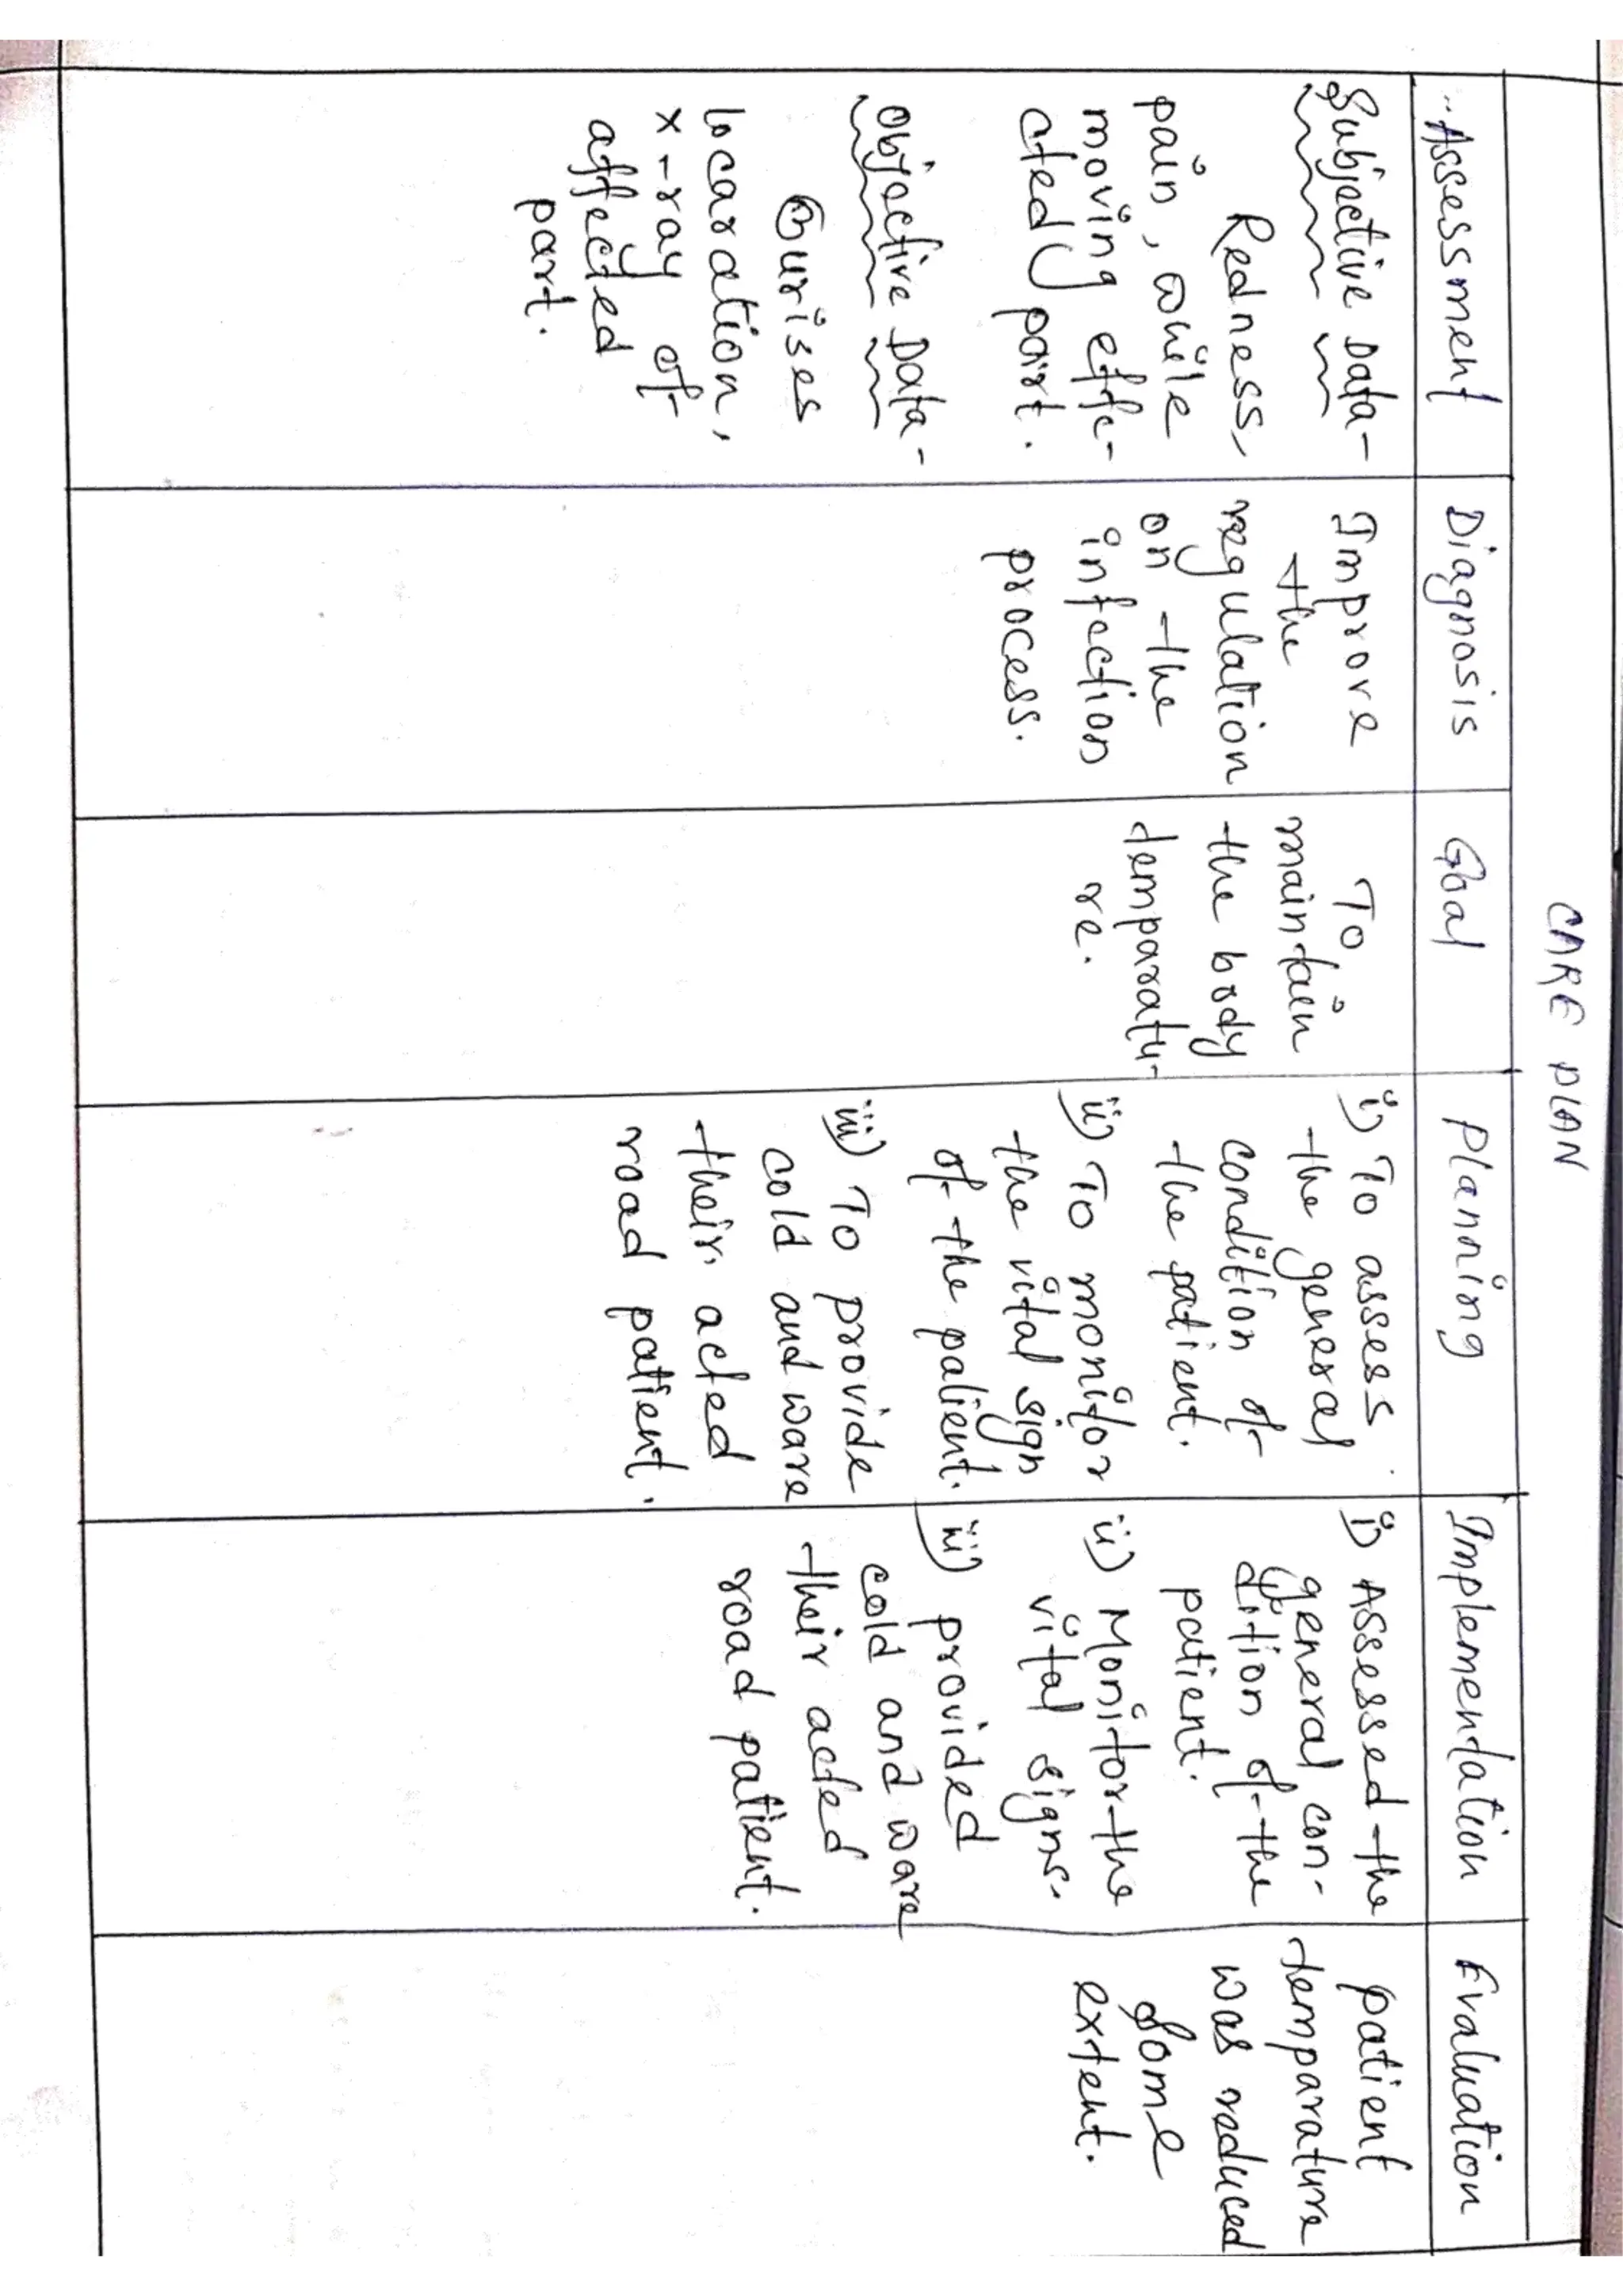 CARE PLAN
Assessment
Subjective Data-
Redness,
pain, while
moving effe-
cted part.
Objective Data-
Burises
locaration,
x-ray of
affected
part.
Diagnosis
Improve
the
regulation
on the
infection
process.
Goal
To
maintain
the body
temparatu-
re.
Planning
i) To assess
the general
condition of
the patient.
ii) To monitor
the vital sign
of the patient.
iii) To provide
cold and ware
their acted
road patient.
Implementation
i) Assessed the
general con-
dition of the
patient.
ii) Monitor the
vital signs.
iii) provided
cold and ware
their acted
road patient.
Evaluation
patient
temparature
was reduced
some
extent.